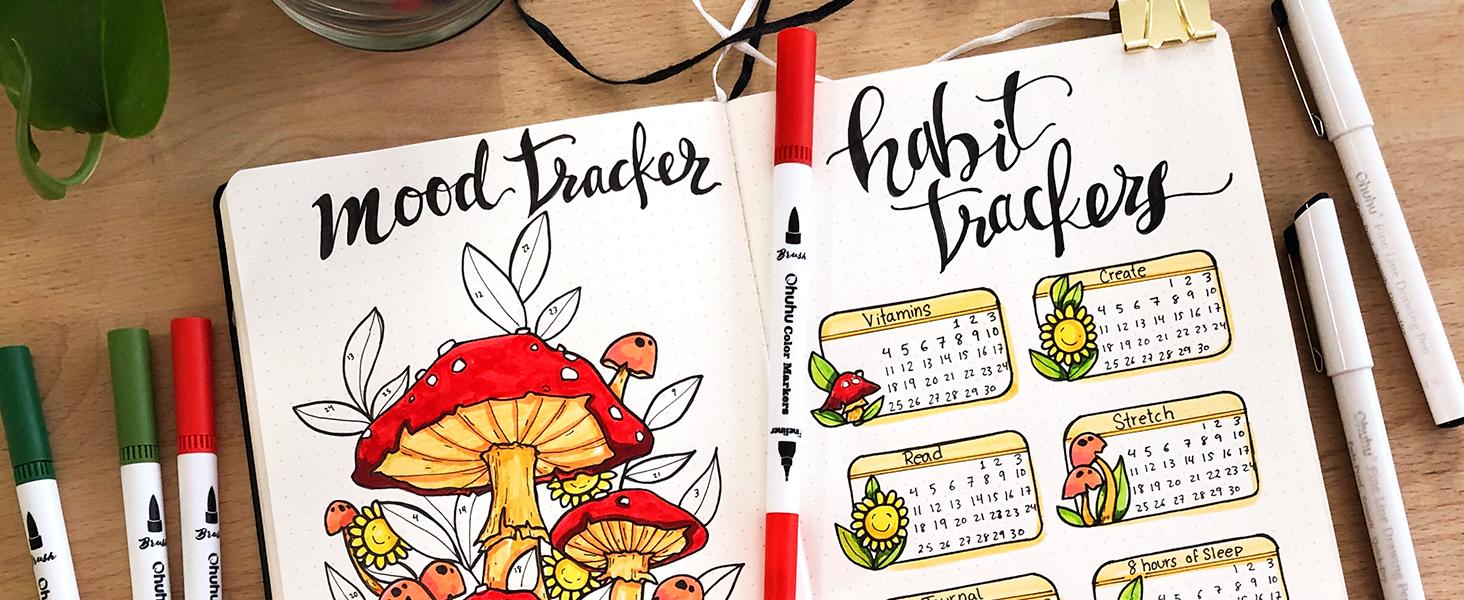 mood tracker
22
12
23
13
24
7
21
3
4
19
18
20
Brush
Ohuhu Color Markers
Fineliner
habit
trackers
Vitamins
1 2 3
4 5 6 7 8 9 10
11 12 13 14 15 16 17
18 19 20 21 22 23 24
25 26 27 28 29 30
Create
1 2 3
4 5 6 7 8 9 10
11 12 13 14 15 16 17
18 19 20 21 22 23 24
25 26 27 28 29 30
Read
1 2 3
4 5 6 7 8 9 10
11 12 13 14 15 16 17
18 19 20 21 22 23 24
25 26 27 28 29 30
Stretch
1 2 3
4 5 6 7 8 9 10
11 12 13 14 15 16 17
18 19 20 21 22 23 24
25 26 27 28 29 30
Journal
8 hours of Sleep
1 2 3
8 9 10
Brush
Brush
Ohuhu
Brush
Ohuhu
Ohuhu Fine Line Drawing Pen
Ohuhu